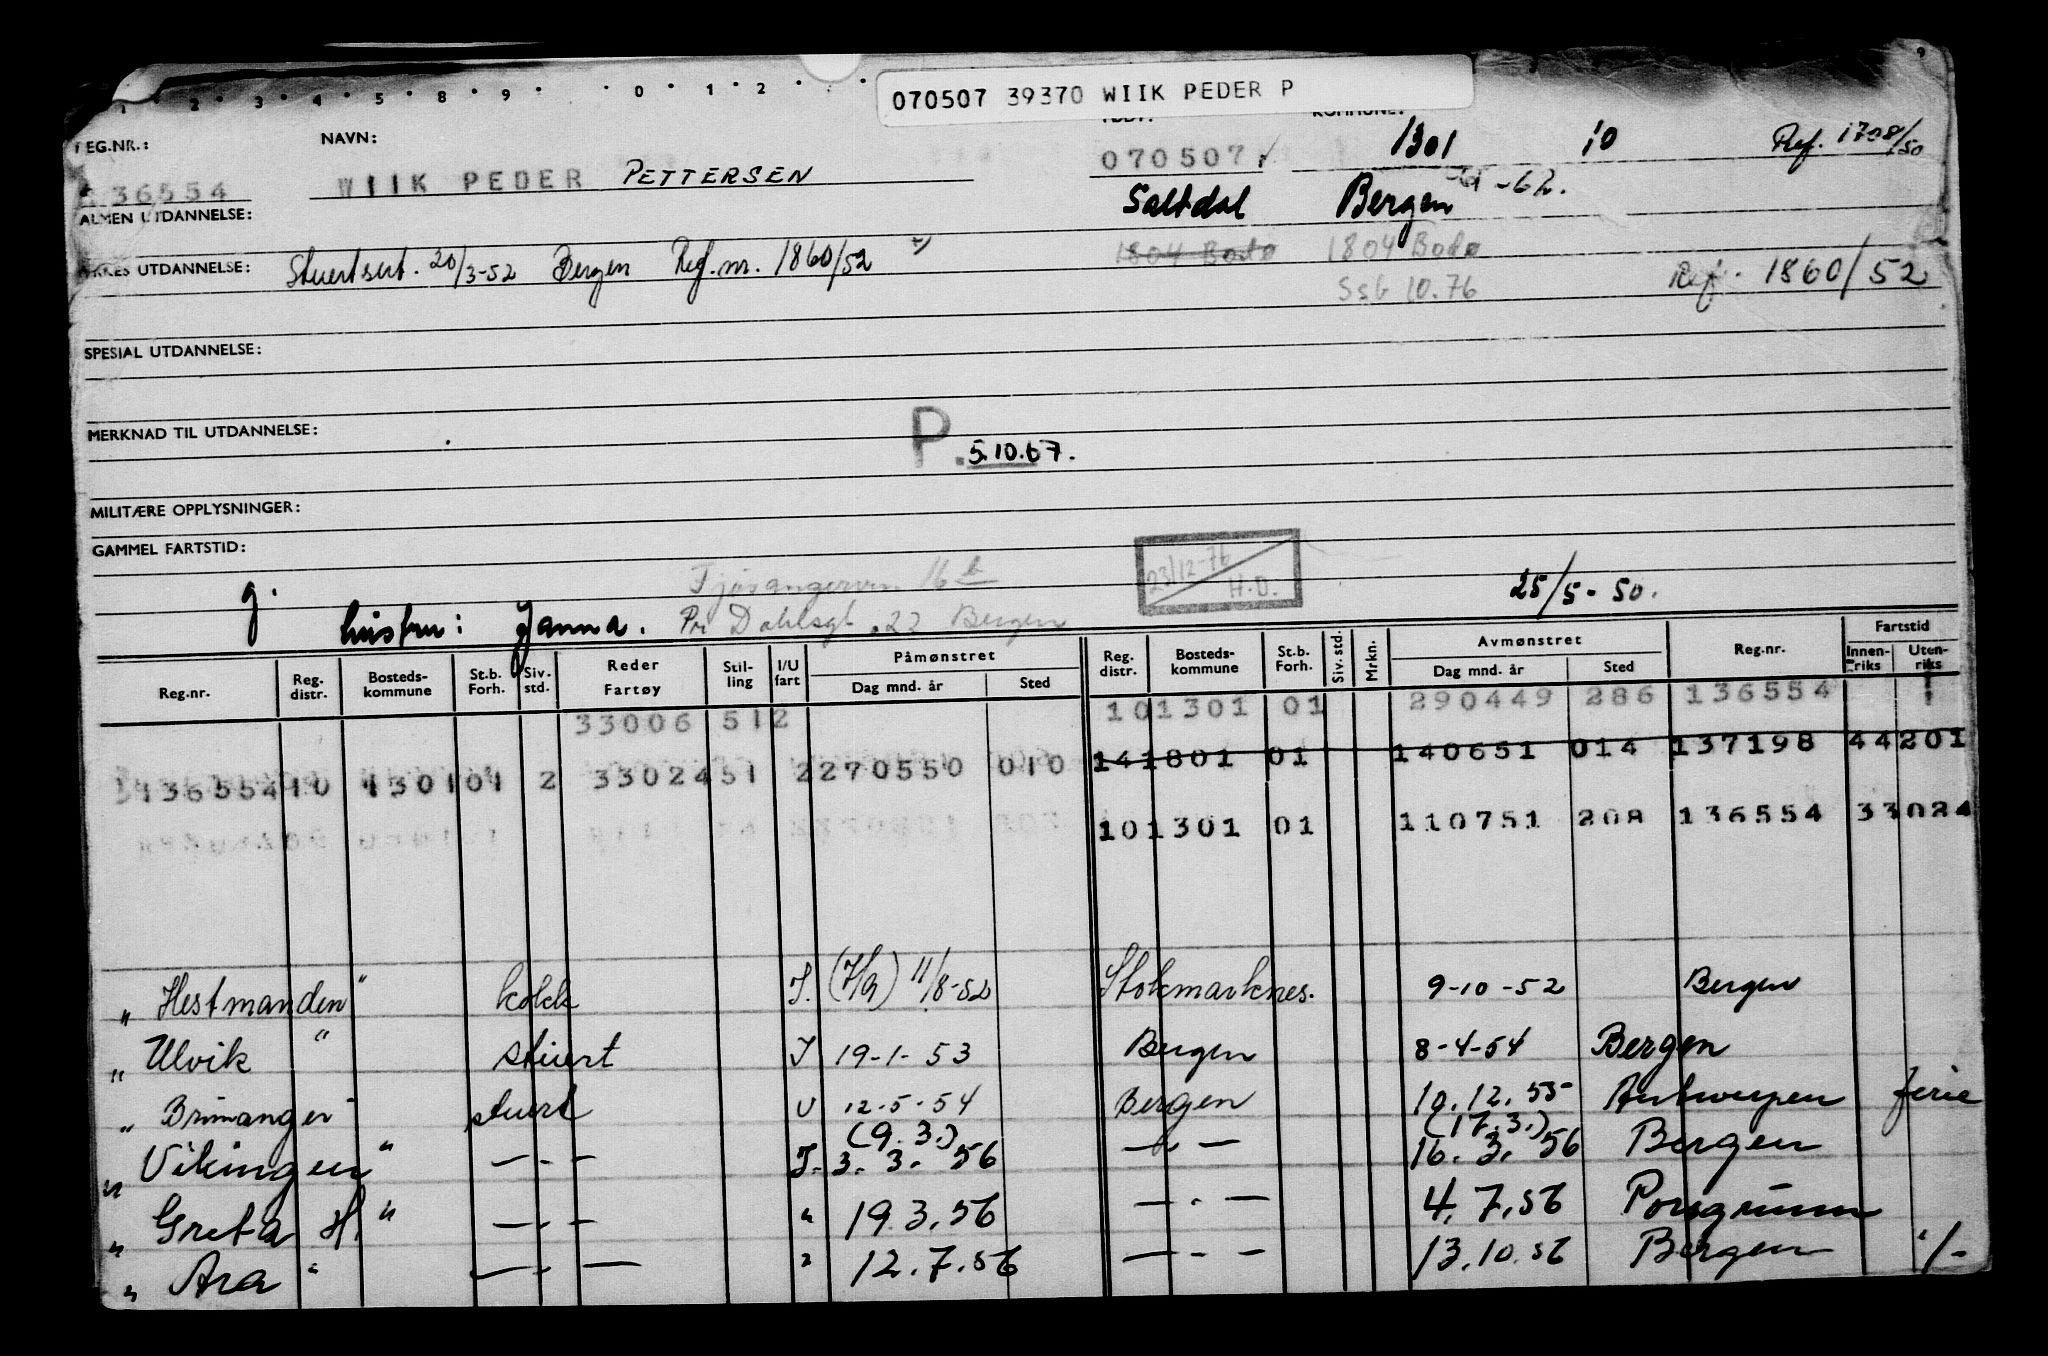 070507 39370 WIIK PEDER P
1 · 2 · 3 · 4 · 5 · 8 · 9 · · 0 · 1 · 2 · ·
REG.NR.: NAVN: 1301 10 Ref. 1708/50
136554 WIIK PEDER PETTERSEN 070507
ALMEN UTDANNELSE: Saltdal Bergen -62.
UTDANNELSE: Stuertsert. 20/3-52 Bergen Ref.nr. 1860/52 1804 Bodø 1804 Bodø
Ssb 10.76 Ref. 1860/52
SPESIAL UTDANNELSE:
MERKNAD TIL UTDANNELSE: P. 5.10.67.
MILITÆRE OPPLYSNINGER:
GAMMEL FARTSTID: 23/12-76 H.O.
g. 16 b 25/5-50.
hustru: Janna. Dahlsgt. 22 Bergen
Reg.nr. Reg. distr. Bosteds-kommune St.b. Forh. Siv. std. Reder Fartøy Stil-ling I/U fart Påmønstret Dag mnd. år Sted Reg. distr. Bosteds-kommune St.b. Forh. Siv. std. Mrkn. Avmønstret Dag mnd. år Sted Reg.nr. Fartstid Innen-riks Uten-riks
33006 512 101301 01 290449 286 136554
141801 01 140651 014 137198 44201
136554 10 1301 01 2 33024 51 2 270550 010
101301 01 110751 208 136554 33024
" Hestmanden " kokk I. 11/8-52 Stokmarknes. 9-10-52 Bergen
" Ulvik " stuert I 19-1-53 Bergen 8-4-54 Bergen
" Brimanger " stuert U 12-5-54 Bergen 10.12.55 Antwerpen ferie
(9.3.) (17.3.)
" Vikingen " — - — I. 3.3.56 — - — 16.3.56 Bergen
" Greta H. " — - — " 19.3.56 — - — 4.7.56 Porsgrunn
" Ara " — - — " 12.7.56 — - — 13.10.56 Bergen ·/-